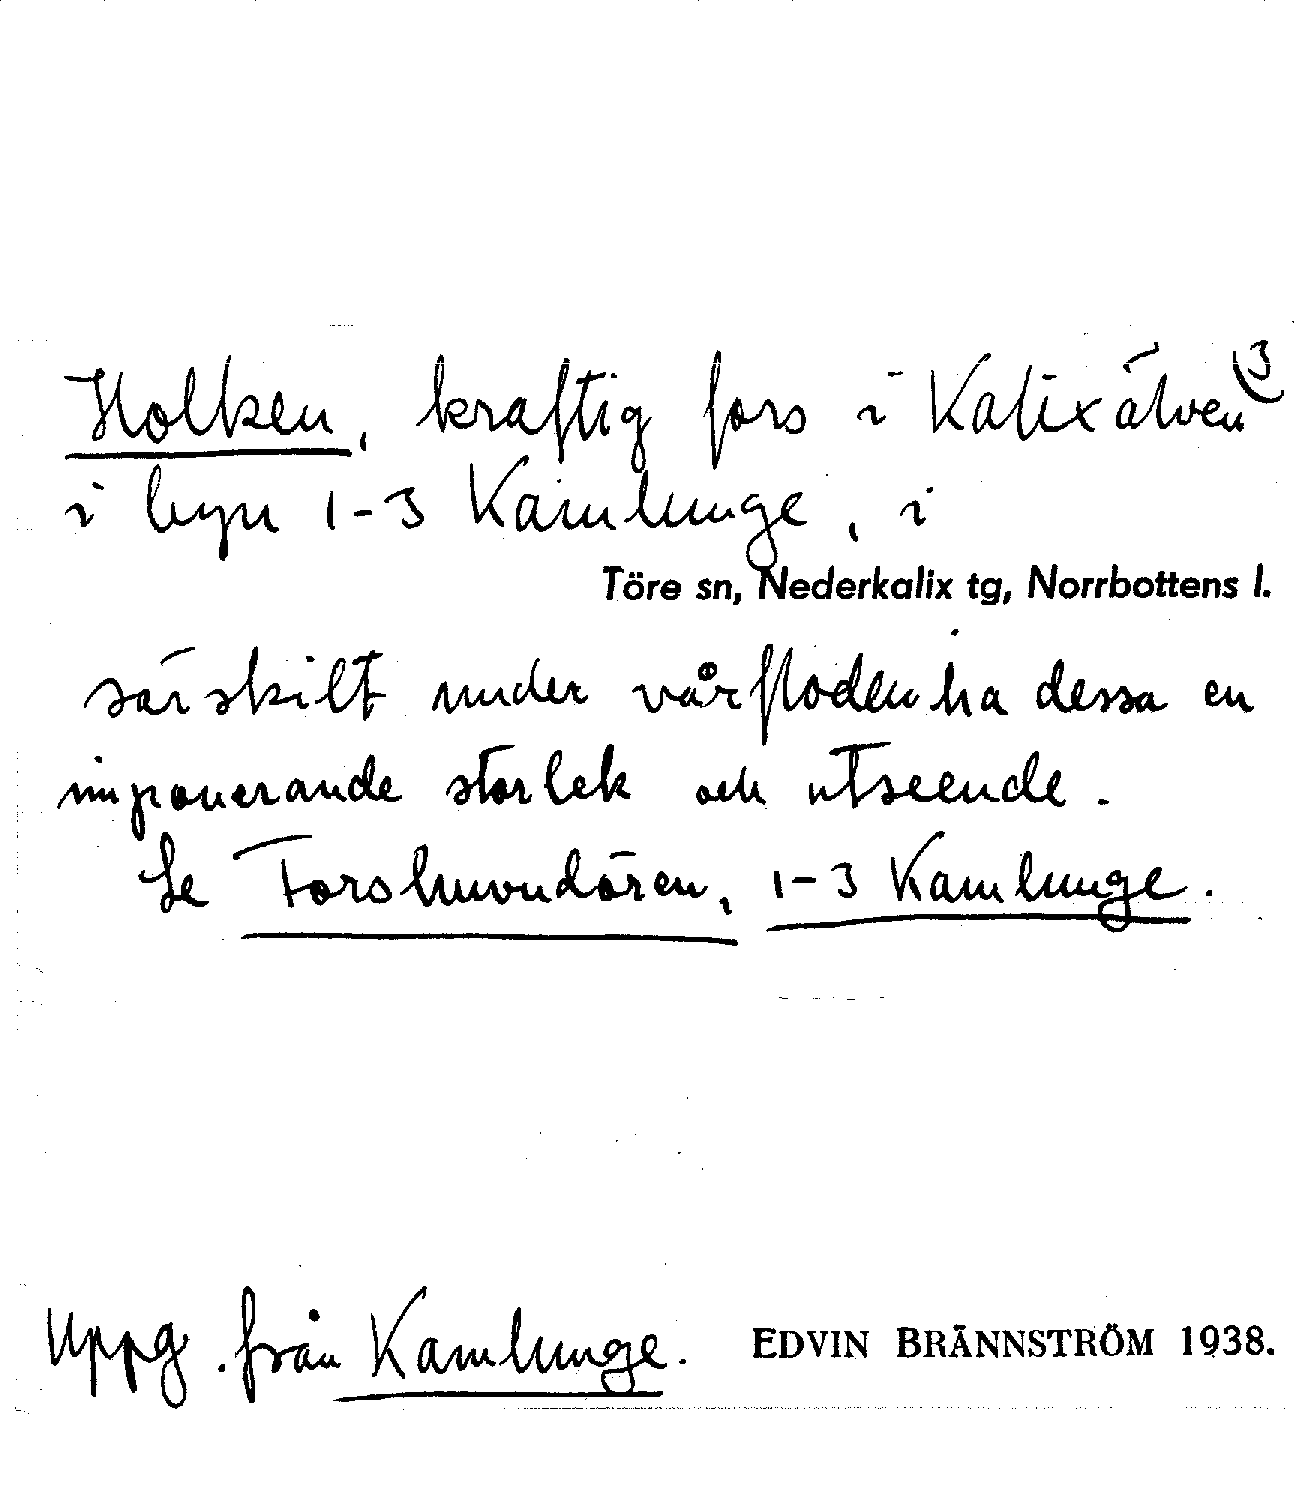 Holken, kraftig fors i Kalixälven 3
i byn 1-3 Kamlunge, i
Töre sn, Nederkalix tg, Norrbottens l.
särskilt under vårfloden ha dessa en
imponerande storlek och utseende.
Se Forshuvudören, 1-3 Kamlunge.
Uppg. från Kamlunge. EDVIN BRÄNNSTRÖM 1938.